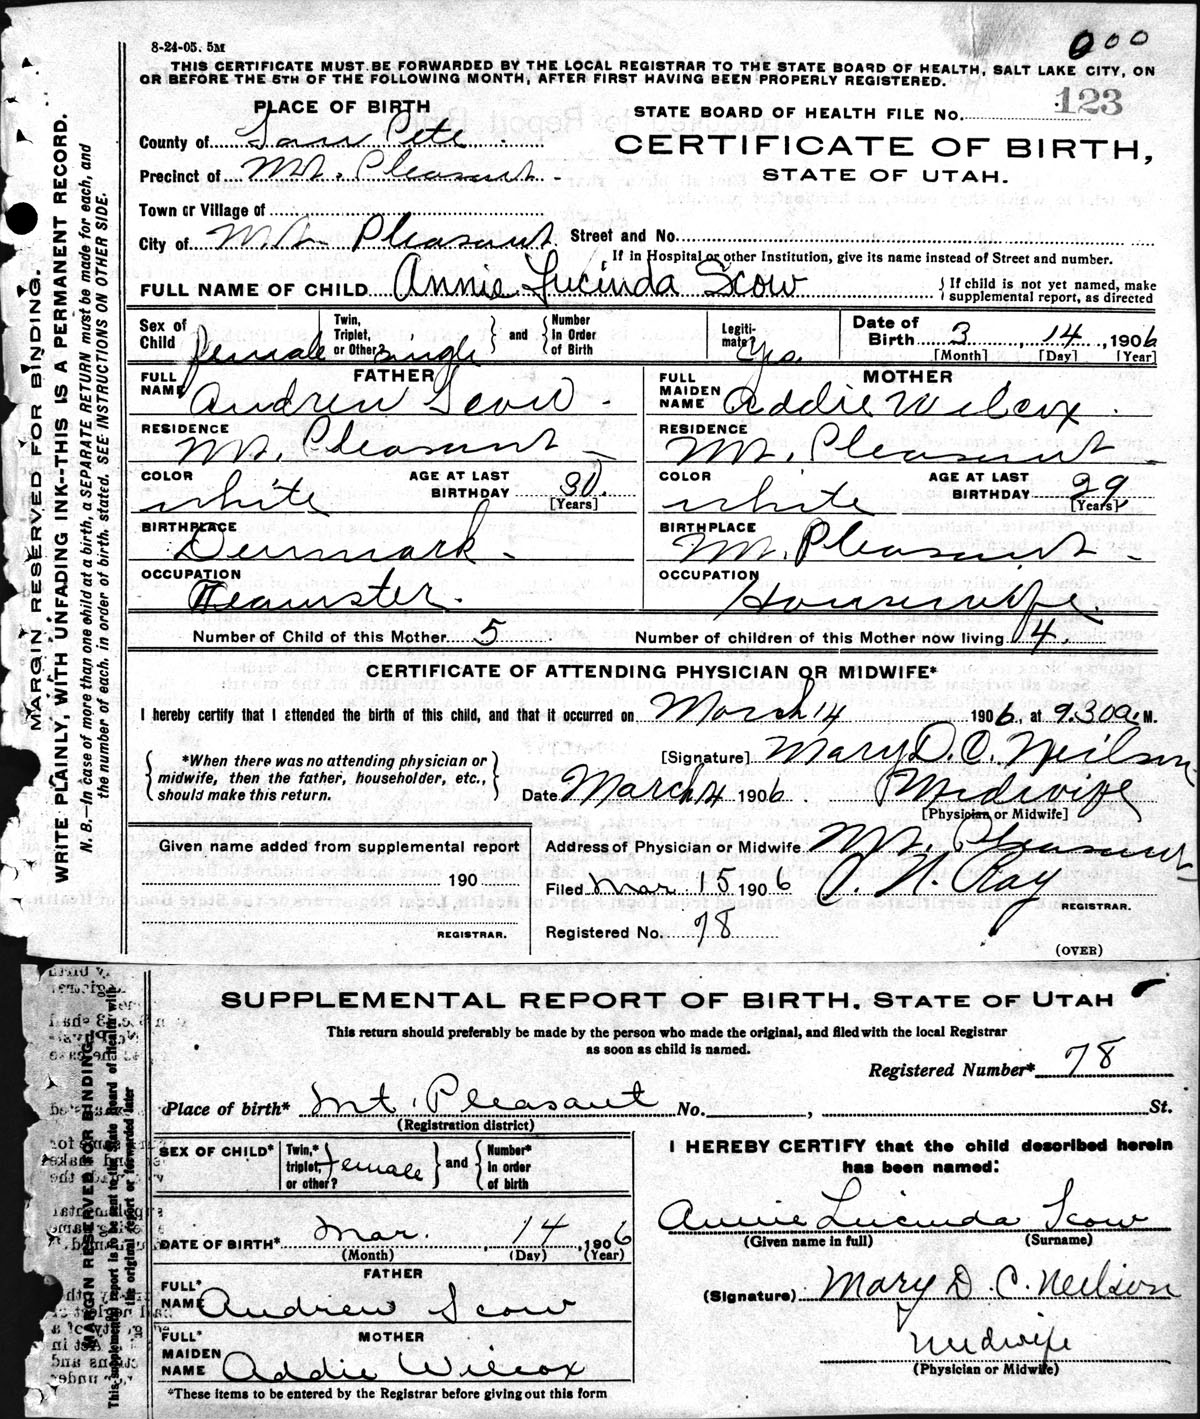 8-24-05. 5M
000
THIS CERTIFICATE MUST BE FORWARDED BY THE LOCAL REGISTRAR TO THE STATE BOARD OF HEALTH, SALT LAKE CITY, ON
OR BEFORE THE 5TH OF THE FOLLOWING MONTH, AFTER FIRST HAVING BEEN PROPERLY REGISTERED.
MARGIN RESERVED FOR BINDING.
WRITE PLAINLY, WITH UNFADING INK--THIS IS A PERMANENT RECORD.
N. B.--In case of more than one child at a birth, a SEPARATE RETURN must be made for each, and
the number of each, in order of birth, stated. SEE INSTRUCTIONS ON OTHER SIDE.
PLACE OF BIRTH
STATE BOARD OF HEALTH FILE No. 123
County of San Pete
CERTIFICATE OF BIRTH,
Precinct of Mt. Pleasant
STATE OF UTAH.
Town or Village of
City of Mt. Pleasant Street and No.
If in Hospital or other Institution, give its name instead of Street and number.
FULL NAME OF CHILD Annie Lucinda Scow { If child is not yet named, make
supplemental report, as directed
Sex of Child female Twin, Triplet, or Other? single and Number In Order of Birth Legiti-mate? Yes. Date of Birth 3, 14, 1906
[Month] [Day] [Year]
FATHER MOTHER
FULL NAME Andrew Scow FULL MAIDEN NAME Addie Wilcox
RESIDENCE Mt. Pleasant RESIDENCE Mt. Pleasant
COLOR white AGE AT LAST BIRTHDAY 30 [Years] COLOR white AGE AT LAST BIRTHDAY 29 [Years]
BIRTHPLACE Denmark BIRTHPLACE Mt. Pleasant
OCCUPATION Teamster. OCCUPATION Housewife.
Number of Child of this Mother 5 Number of children of this Mother now living 4.
CERTIFICATE OF ATTENDING PHYSICIAN OR MIDWIFE*
I hereby certify that I attended the birth of this child, and that it occurred on March 14 1906, at 9.30 a. M.
*When there was no attending physician or
midwife, then the father, householder, etc.,
should make this return.
[Signature] Mary D. C. Neilson
Date March 14 1906. Midwife
[Physician or Midwife]
Given name added from supplemental report
190
REGISTRAR.
Address of Physician or Midwife Mt. Pleasant
Filed Mar 15 1906 Ray
REGISTRAR.
Registered No. 78
(OVER)
MARGIN RESERVED FOR BINDING
This supplemental report is to be sent to the State Board of Health with
the original report or forwarded later
SUPPLEMENTAL REPORT OF BIRTH, STATE OF UTAH
This return should preferably be made by the person who made the original, and filed with the local Registrar
as soon as child is named.
Registered Number* 78
Place of birth* Mt. Pleasant No. , St.
(Registration district)
SEX OF CHILD* Twin,* triplet, or other? female and Number* in order of birth
DATE OF BIRTH* Mar. 14, 1906
(Month) (Day) (Year)
FATHER
FULL* NAME Andrew Scow
MOTHER
FULL* MAIDEN NAME Addie Wilcox
*These items to be entered by the Registrar before giving out this form
I HEREBY CERTIFY that the child described herein
has been named:
Annie Lucinda Scow
(Given name in full) (Surname)
(Signature) Mary D. C. Neilson
Midwife
(Physician or Midwife)